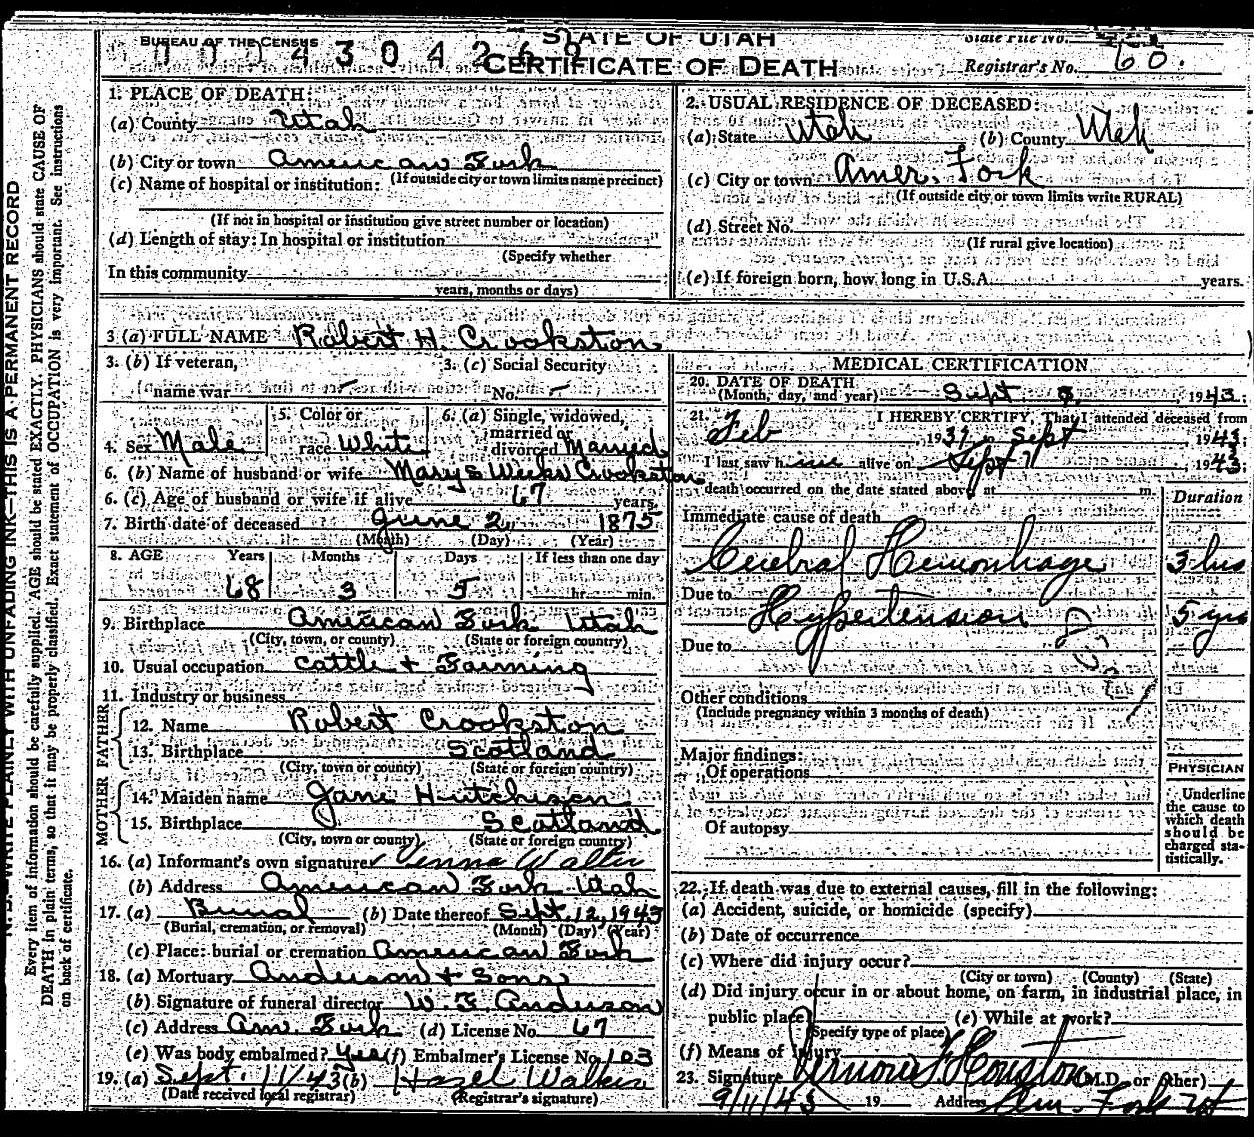 BUREAU OF THE CENSUS
STATE OF UTAH
CERTIFICATE OF DEATH
State File No.
Registrar's No. 60.
N. B. WRITE PLAINLY WITH UNFADING INK—THIS IS A PERMANENT RECORD
Every item of information should be carefully supplied. AGE should be stated EXACTLY. PHYSICIANS should state CAUSE OF
DEATH in plain terms, so that it may be properly classified. Exact statement of OCCUPATION is very important. See instructions
on back of certificate.
1. PLACE OF DEATH:
(a) County Utah
(b) City or town American Fork
(If outside city or town limits name precinct)
(c) Name of hospital or institution:
(If not in hospital or institution give street number or location)
(d) Length of stay: In hospital or institution
(Specify whether
In this community
years, months or days)
2. USUAL RESIDENCE OF DECEASED:
(a) State Utah (b) County Utah
(c) City or town Amer. Fork
(If outside city or town limits write RURAL)
(d) Street No.
(If rural give location)
(e) If foreign born, how long in U.S.A. years.
3 (a) FULL NAME Robert H. Crookston
3. (b) If veteran, 3. (c) Social Security
name war – No. –
4. Sex Male 5. Color or race White 6. (a) Single, widowed, married or divorced Married
6. (b) Name of husband or wife Mary S Weeks Crookston
6. (c) Age of husband or wife if alive 67 years.
7. Birth date of deceased June 1875
(Month) (Day) (Year)
8. AGE Years Months Days If less than one day
68 3 5 hr. min.
9. Birthplace American Fork Utah
(City, town, or county) (State or foreign country)
10. Usual occupation cattle + Farming
11. Industry or business
FATHER
12. Name Robert Crookston
13. Birthplace Scotland
(City, town or county) (State or foreign country)
MOTHER
14. Maiden name Jane Hutchison
15. Birthplace Scotland
(City, town or county) (State or foreign country)
16. (a) Informant's own signature Walker
(b) Address American Fork Utah
17. (a) Burial (b) Date thereof Sept. 12, 1943
(Burial, cremation, or removal) (Month) (Day) (Year)
(c) Place: burial or cremation American Fork
18. (a) Mortuary Anderson + Sons
(b) Signature of funeral director W. E. Anderson
(c) Address Am. Fork (d) License No. 67
(e) Was body embalmed? Yes (f) Embalmer's License No. 103
19. (a) Sept. 11/43 (b) Hazel Walker
(Date received local registrar) (Registrar's signature)
MEDICAL CERTIFICATION
20. DATE OF DEATH
(Month, day, and year) Sept 1943.
21. I HEREBY CERTIFY, That I attended deceased from
Feb 1939 Sept 1943.
I last saw him alive on Sept 1943.
death occurred on the date stated above, at m.
Duration
Immediate cause of death
Cerebral Hemorrhage 3 hrs
Due to Hypertension 5 yrs
Due to
Other conditions
(Include pregnancy within 3 months of death)
Major findings:
Of operations
Of autopsy
PHYSICIAN
Underline
the cause to
which death
should be
charged sta-
tistically.
22. If death was due to external causes, fill in the following:
(a) Accident, suicide, or homicide (specify)
(b) Date of occurrence
(c) Where did injury occur?
(City or town) (County) (State)
(d) Did injury occur in or about home, on farm, in industrial place, in
public place? (e) While at work?
(Specify type of place)
(f) Means of injury
23. Signature Vernon F Houston (M.D. or other)
9/11/43 19 Address Am. Fork Ut